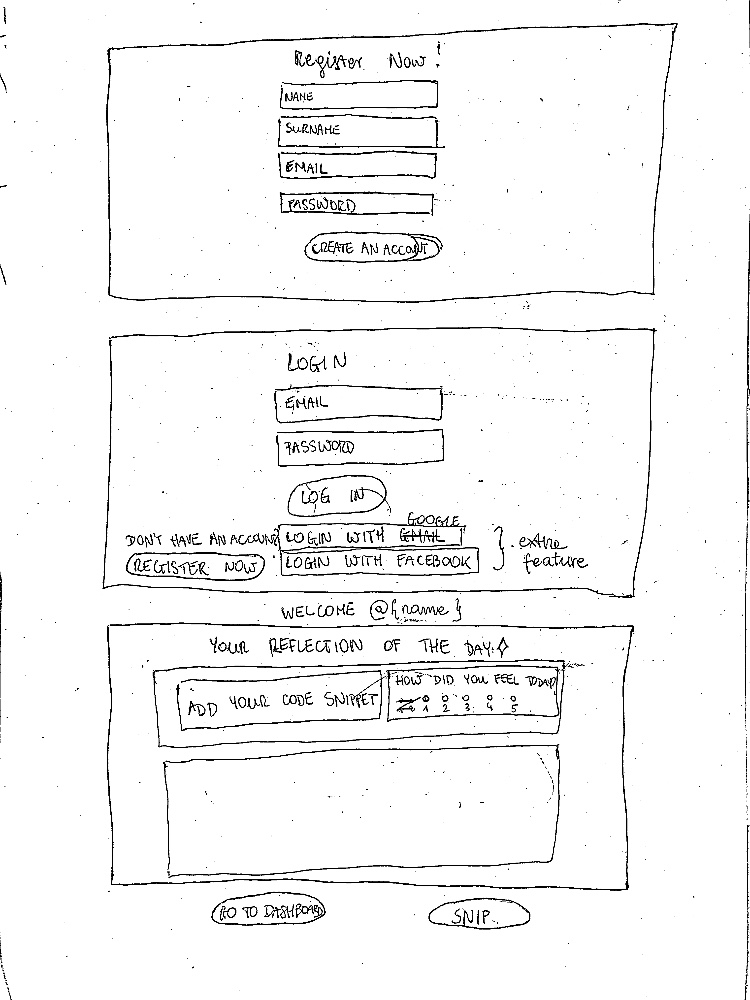 Register Now!
NAME
SURNAME
EMAIL
PASSWORD
CREATE AN ACCOUNT
LOGIN
EMAIL
PASSWORD
LOG IN
GOOGLE
DON'T HAVE AN ACCOUNT? LOGIN WITH EMAIL
REGISTER NOW LOGIN WITH FACEBOOK
extra
feature
WELCOME @{name}
YOUR REFLECTION OF THE DAY:
ADD YOUR CODE SNIPPET
HOW DID YOU FEEL TODAY?
1 2 3 4 5
GO TO DASHBOARD
SNIP.